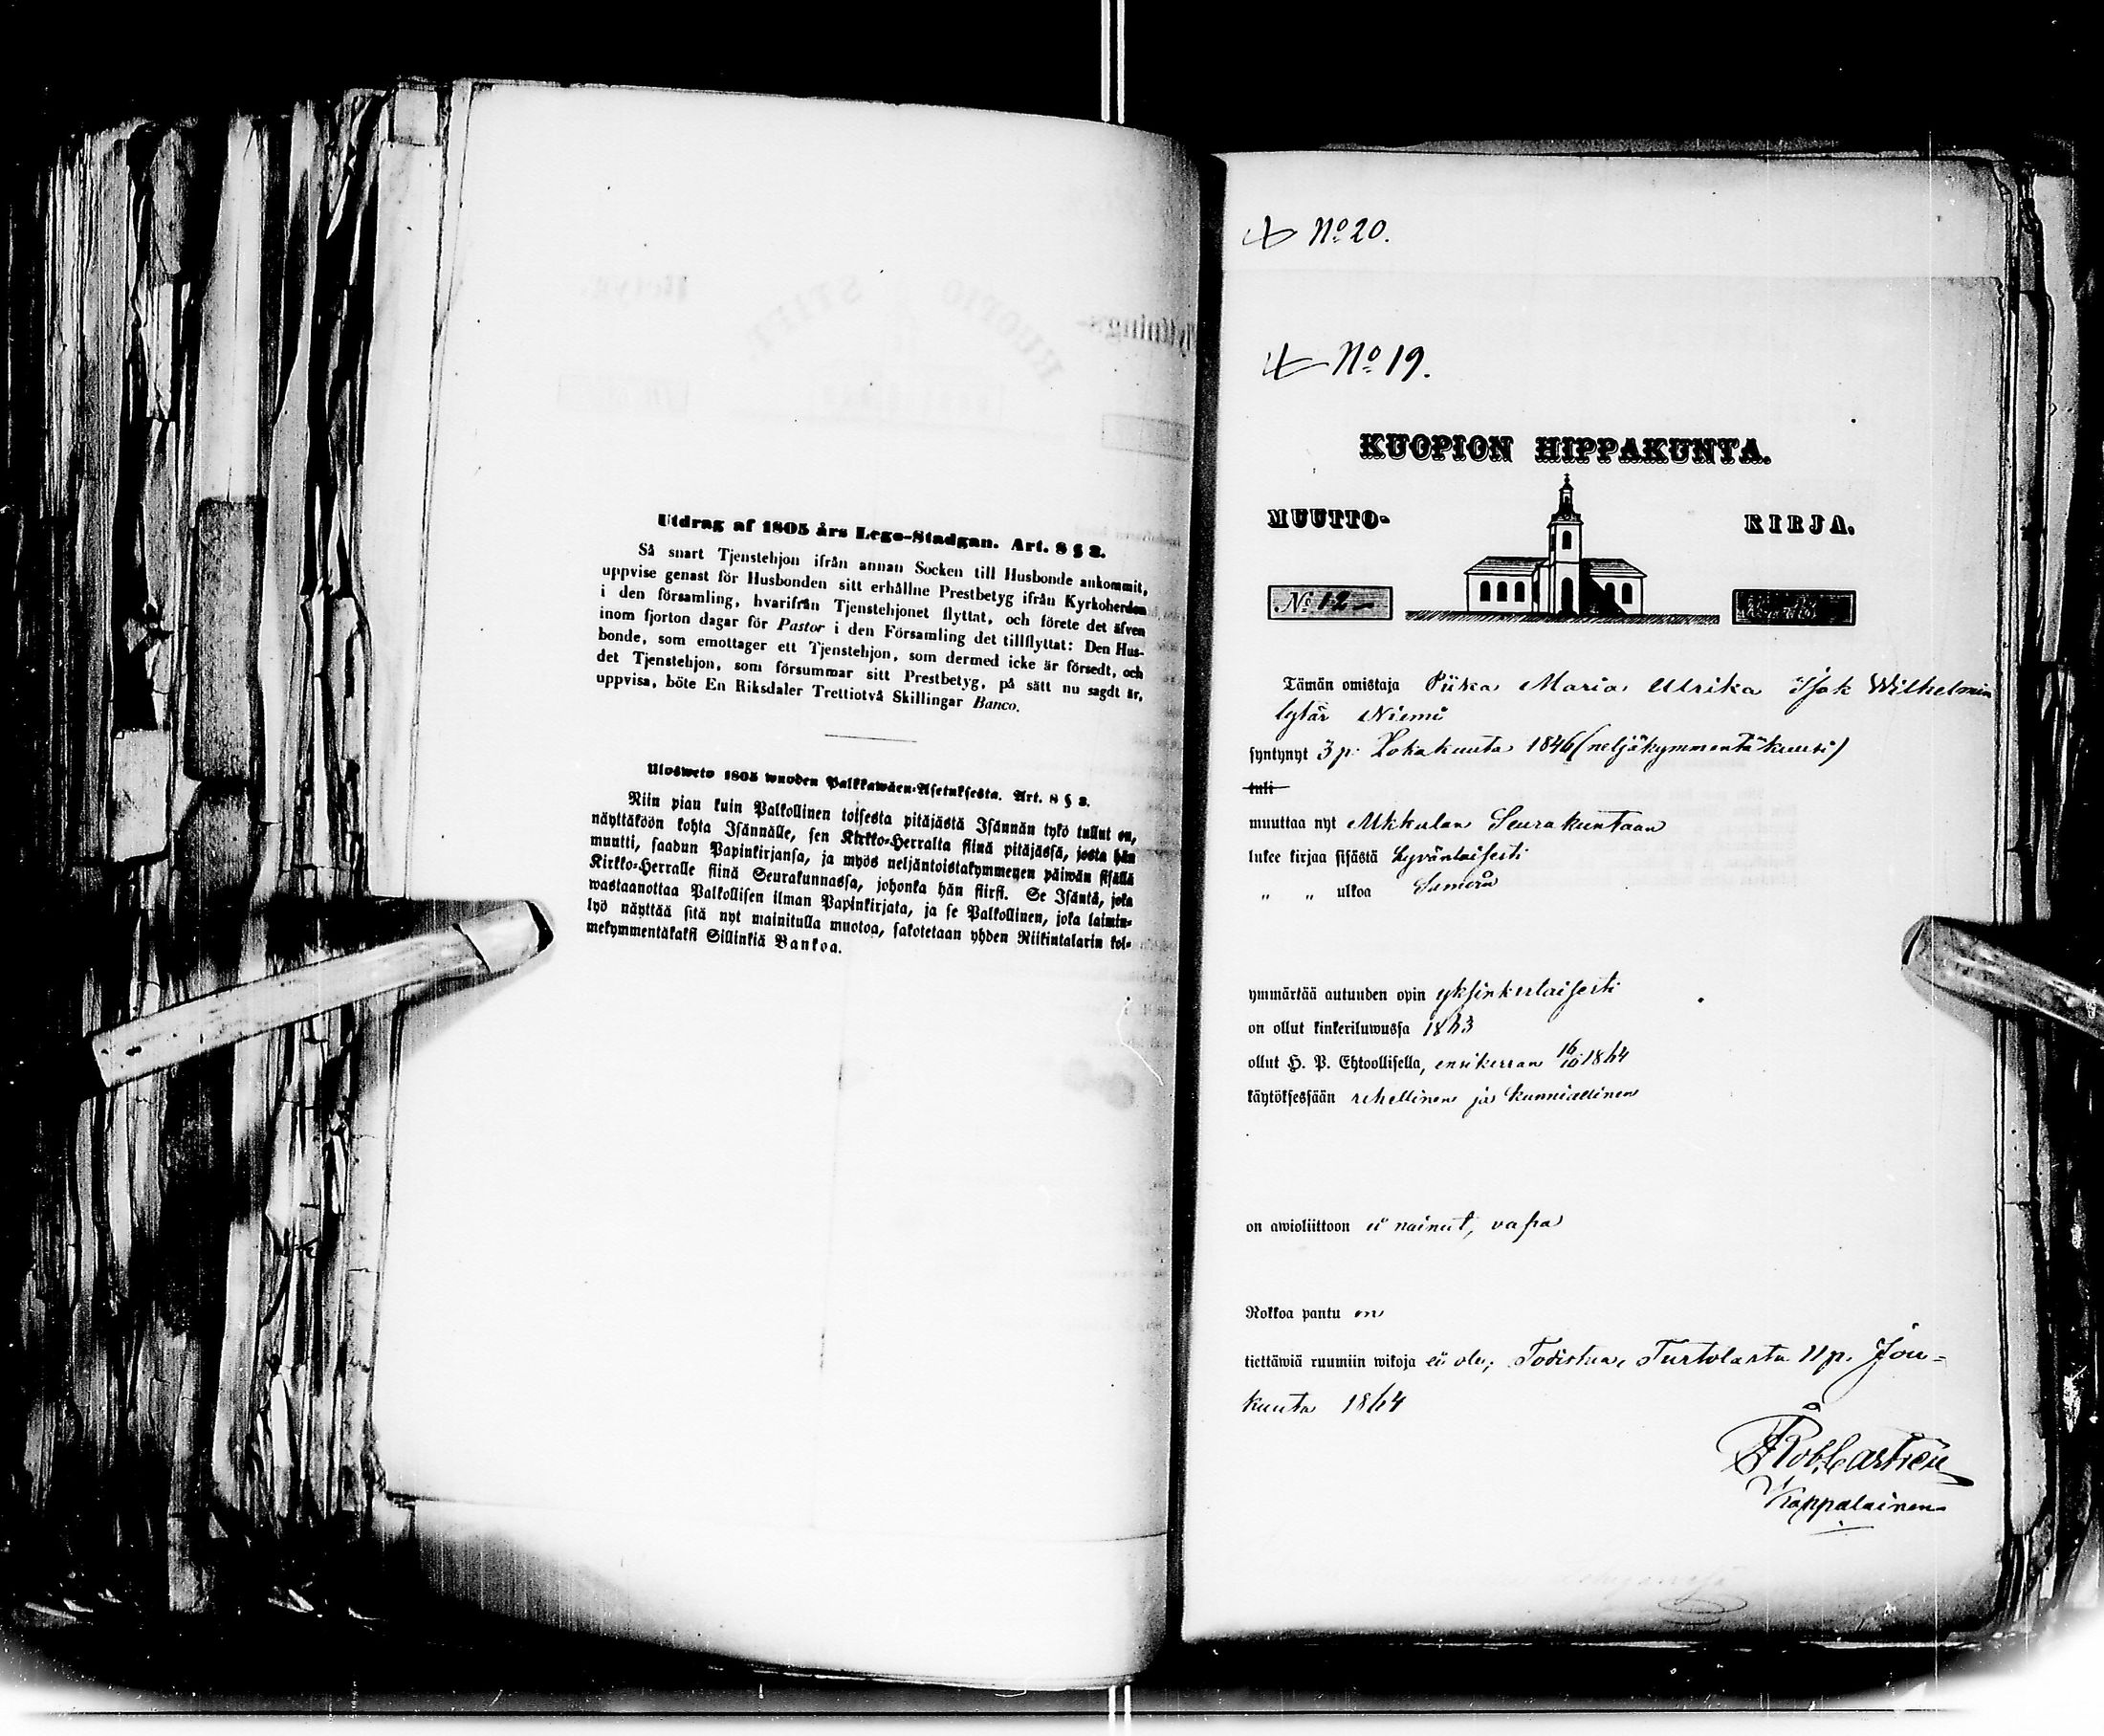 Utdrag af 1805 års Lego-Stadgan. Art. 8 § 3.
Så snart Tjenstehjon ifrån annan Socken till Husbonde ankommit,
uppvise genast för Husbonden sitt erhållne Prestbetyg ifrån Kyrkoherden
i den församling, hvarifrån Tjenstehjonet flyttat, och förete det äfven
inom fjorton dagar för Pastor i den Församling det tillflyttat: Den Hus-
bonde, som emottager ett Tjenstehjon, som dermed icke är försedt, och
det Tjenstehjon, som försummar sitt Prestbetyg, på sätt nu sagdt är,
uppvisa, böte En Riksdaler Trettiotvå Skillingar Banco.
Ulosweto 1805 wuoden Palkkawäen-Asetuksesta. Art. 8 § 3.
Niin pian kuin Palkollinen toisesta pitäjästä Isännän tykö tullut on,
näyttäköön kohta Isännälle, sen Kirkko-Herralta siinä pitäjässä, josta hän
muutti, saadun Papinkirjansa, ja myös neljäntoistakymmenen päiwän sisällä
Kirkko-Herralle siinä Seurakunnassa, johonka hän siirsi. Se Isäntä, joka
wastaanottaa Palkollisen ilman Papinkirjata, ja se Palkollinen, joka laimin-
lyö näyttää sitä nyt mainitulla muotoa, sakotetaan yhden Riikintalarin kol-
mekymmentäkaksi Sillinkiä Bankoa.
No 20.
No 19.
KUOPION HIPPAKUNTA.
MUUTTO- KIRJA.
No 12
Tämän omistaja Piika Maria Ulrika Isak Wilhelmin
tytär Niemi
syntynyt 3 p: Lokakuuta 1846 (neljäkymmentäkuusi)
tuli
muuttaa nyt Ukkulan Seurakuntaan
lukee kirjaa sisästä hyvänlaisesti
„ „ ulkoa Samoin
ymmärtää autuuden opin yksinkertaisesti
on ollut kinkeriluwussa 1863
ollut H. P. Ehtoollisella, ensikerran 16/10 1864
käytöksessään rehellinen ja kunniallinen
on awioliittoon ei nainut, vapa
Rokkoa pantu on
tiettäwiä ruumiin wikoja ei ole; Todistaa, Turtolasta 11 p. Jou-
kuuta 1864
Rob. Castrén
Kappalainen